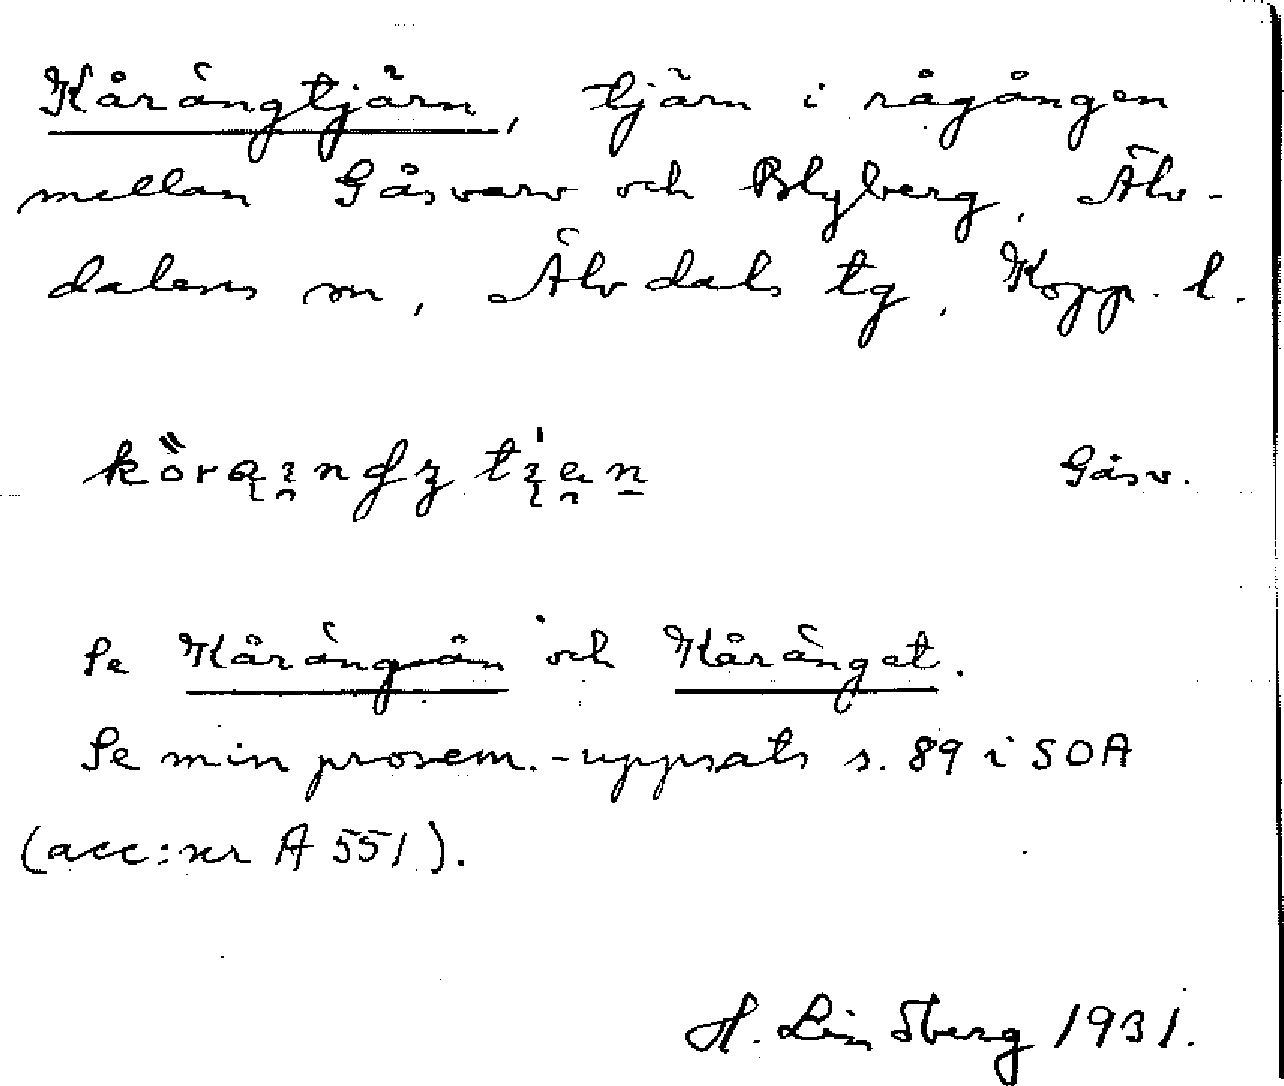 Kårängtjärn, tjärn i rågången
mellan Gåsvarv och Blyberg, Älv-
dalens sn, Älvdals tg, Kopp. l.
Gåsv.
Se Kårängån och Kåränget.
Se min prosem.-uppsats s. 89 i SOA
(acc:nr A 551).
H. Lindberg 1931.